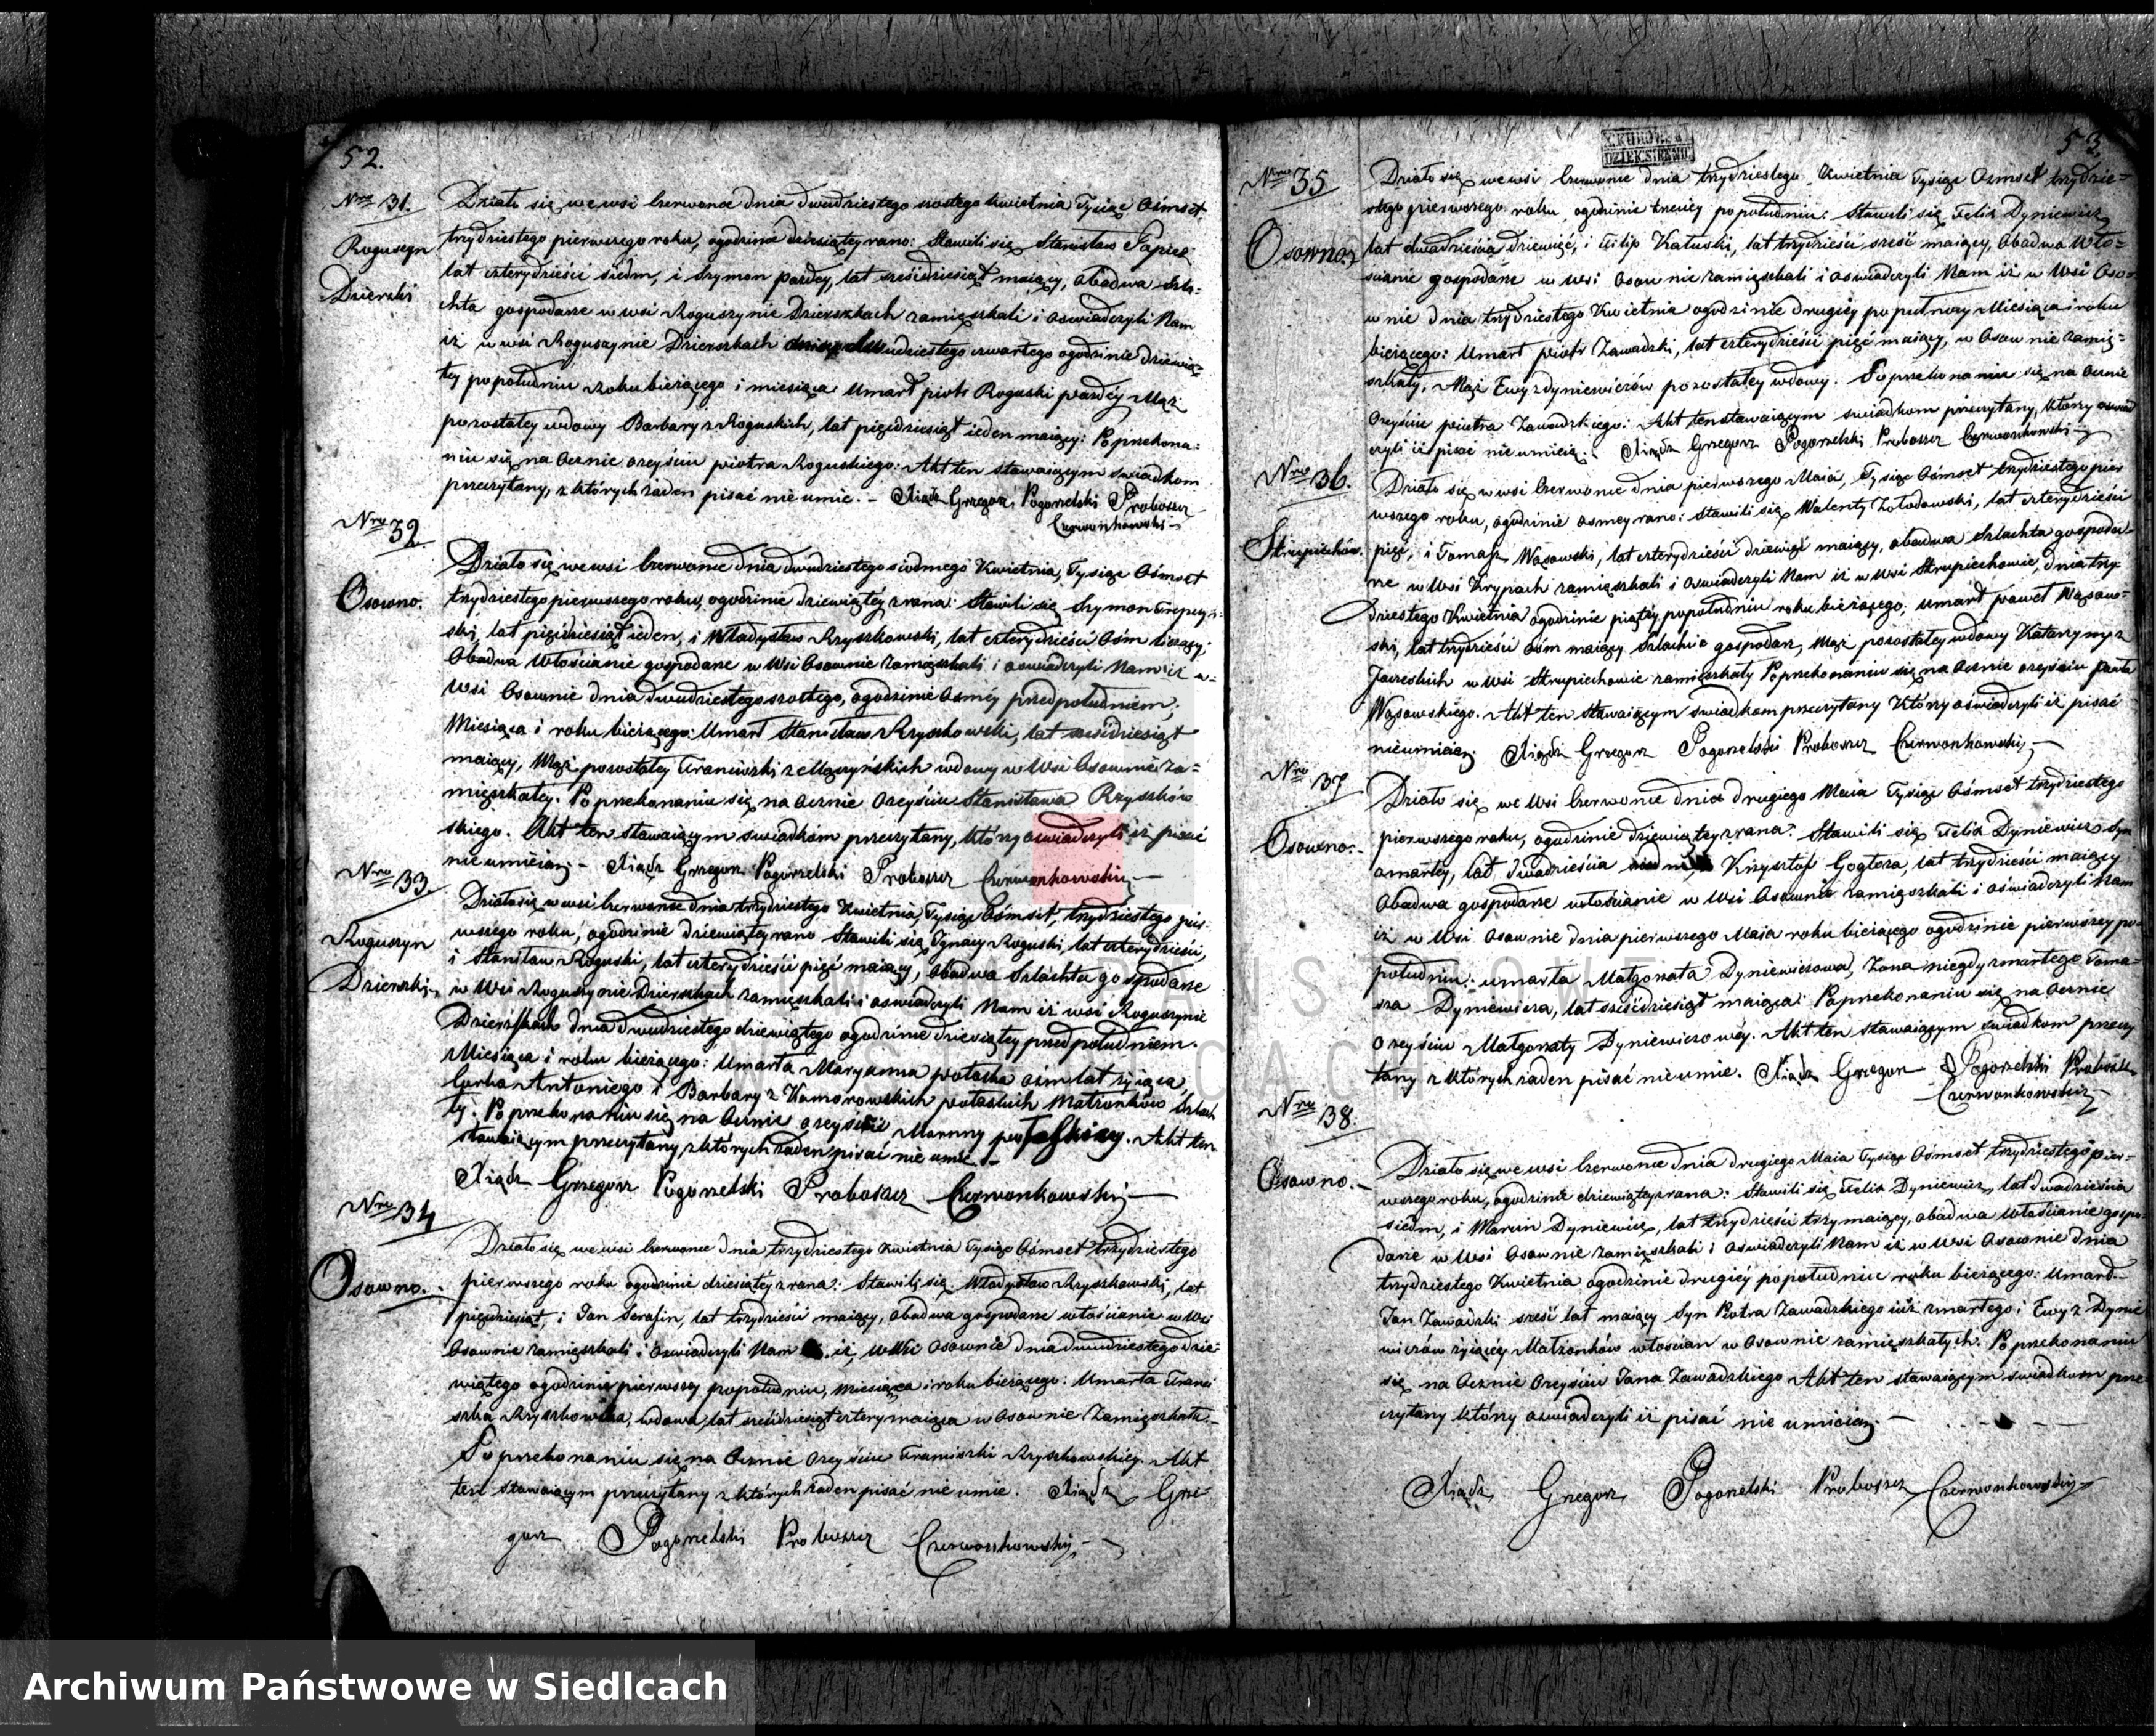 52.
Nro 31.
Roguszyn
Dzierzki
Działo się we wsi Czerwonce dnia dwudziestego szostego kwietnia Tysiąc Ośmset
trzydziestego pierwszego roku, ogodzinie dziesiątey rano: Stawili się Stanisław Papież
lat czterydzieści siedm, i Szymon pazdey, lat sześćdziesiąt maiący, Obadwa szla=
chta gospodarze w wsi Roguszynie Dzierszkach zamięszkali i oswiadczyli Nam
iż w wsi Roguszynie Dzierszkach dwudziestego czwartego ogodzinie dziewią
tey popołudniu roku bieżącego i miesiąca Umarł piotr Roguski pazdéy Mąż
pozostałey wdowy Barbary z Roguskich, lat pięćdziesiąt ieden maiący: Poprzekona=
niu się na Ocznie zeyściu piotra Roguskiego: Akt ten stawaiącym swiadkom
przeczytany, z których żaden pisać nie umie. – Xiądz Grzegorz Pogorzelski Proboszcz
Czerwonkowski –
Nro 32.
Osowno.
Działo się we wsi Czerwonce dnia dwudziestego siodmego Kwietnia, Tysiąc Ośmset
trzydziestego pierwszego roku, ogodzinie dziewiątéy zrana: Stawili się Szymon
ski, lat pięćdziesiąt ieden, i Władysław Rzyszkowski, lat czterydzieści Ośm liczący;
Obadwa Włościanie gospodarze w Wsi Osownie zamięszkali i oswiadczyli Nam iż w=
Wsi Osownie dnia dwudziestego szostego, ogodzinie Osmey przedpołudniem;
Miesiąca i roku bieżącego: Umarł Stanisław Rzyszkowski, lat sześćdziesiąt
maiący, Mąż pozostałey Franciszki z Mączyńskich wdowy w Wsi Osownie za=
mięszkałey. Poprzekonaniu się na Ocznie Ozeyściu Stanisława Rzyszkow
skiego. Akt ten stawaiącym swiadkom przeczytany, którzy oswiadczyli iż pisać
nie umieią – Xiądz Grzegorz Pogorzelski Proboszcz Czerwonkowski –
Nro 33.
Roguszyn
Dzierszki
Działo się w wsi Czerwonce dnia trzydziestego Kwietnia, Tysiąc Ośmset, trzydziestego pier
wszego roku, ogodzinie dziewiątey rano Stawili się Ignacy Roguski, lat czterydzieści,
i Stanisław Roguski, lat czterydzieści pięć maiący, Obadwa Szlachta gospodarze
w Wsi Roguszynie Dzierszkach zamięszkali i oswiadczyli Nam iż wsi Roguszynie
Dzierszkach dnia dwudziestego dziewiątego ogodzinie dziewiątey przedpołudniem.
Miesiąca i roku bieżącego: Umarła Maryanna potocka ośm lat żyiąca,
Corka Antoniego i Barbary z Komorowskich potockich Małżonków Szlach
ty. Poprzekonaniu się na Ocznie ozeyściu Maranny Akt ten
stawaiącym przeczytany, z których żaden pisać nie umie –
Xiądz Grzegorz Pogorzelski Proboszcz Czerwonkowski –
Nro 34
Osowno.
Działo się we wsi Czerwonce dnia trzydziestego Kwietnia Tysiąc Ośmset trzydziestego
pierwszego roku ogodzinie dziesiątéy zrana: Stawili się Władysław Rzyszkowski, lat
pięćdziesiąt, i Jan Serafin, lat trzydzieści maiący, Obadwa gospodarze włościanie w Wsi
Osownie zamięszkali i oswiadczyli Nam iż, w Wsi Osownie dnia dwudziestego dzie=
wiątego ogodzinie pierwszey popołudniu, miesiąca i roku bieżącego: Umarła Franci
szka Rzyszkowska, wdowa, lat sześćdziesiąt cztery maiąca w Osownie Zamięszkała.
Poprzekonaniu się na Ocznie Ozeyściu Franciszki Rzyszkowskiéy. Akt
ten stawaiącym przeczytany z których żaden pisać nie umie. Xiądz Grze=
gorz Pogorzelski Proboszcz Czerwonkowski –
53.
Nro 35
Osowno
Działo się we wsi Czerwonce dnia trzydziestego Kwietnia Tysiąc Ośmset trzydzie=
stego pierwszego roku, ogodzinie trzeciey popołudniu: Stawili się Felix Dyniewicz
lat dwadzieścia dziewięć, i Filip Kałuski, lat trzydzieści sześć maiący, Obadwa Wło=
scianie gospodarze w wsi Osownie zamięszkali i oswiadczyli Nam iż w Wsi Oso=
wnie dnia trzydziestego Kwietnia ogodzinie drugiéy po pułnocy Miesiąca i roku
bieżącego: Umarł piotr Zawadzki, lat czterydzieści pięć maiący, w Osownie zamię=
szkały, Mąż Ewy z dyniewiczów pozostałey wdowy. Poprzekonaniu się na Ocznie
Ozeyściu piotra Zawadzkiego: Akt ten stawaiącym swiadkom przeczytany, którzy oswiad
czyli iż pisać nie umieią. Xiądz Grzegorz Pogorzelski Proboszcz Czerwonkowski –
Nro 36.
Strupiechów.
Działo się w wsi Czerwonce dnia pierwszego Maia, Tysiąc Ośmset trzydziestego pier
wszego roku, ogodzinie osmey rano: Stawili się Walenty Zołodowski, lat czterydzieści
pięć, i Tomasz Wąsowski, lat czterydzieści dziewięć maiący, obadwa szlachta gospoda
rze w Wsi Krypach zamięszkali i oswiadczyli Nam iż w Wsi Strupiechowie, dnia trzy
dziestego Kwietnia ogodzinie piątéy popołudniu roku bieżącego; umarł paweł Wąsow=
ski, lat trzydzieści Ośm maiący Szlachcic gospodarz, Mąż pozostałey wdowy Katarzyny z
Jarzeskich w Wsi Strupiechowie zamięszkały Poprzekonaniu się na Ocznie ozeyściu pawła
Wąsowskiego. Akt ten stawaiącym swiadkom przeczytany którzy oswiadczyli iż pisać
nieumieią. Xiądz Grzegorz Pogorzelski Proboszcz Czerwonkowski –
Nro 37
Osowno.
Działo się we Wsi Czerwonce dnia drugiego Maia Tysiąc Ośmset trzydziestego
pierwszego roku, ogodzinie dziewiątey zrana: Stawili się Felix Dyniewicz Syn
zmarłey, lat Dwadzieścia Krzysztof Gogtora, lat trzydzieści maiący
Obadwa gospodarze włościanie w Wsi Osownie zamięszkali i oświadczyli Nam
iż w Wsi Osownie dnia pierwszego Maia roku bieżącego ogodzinie pierwszey po=
południu: umarła Małgorzata Dyniewiczowa, Zona niegdy zmarłego Toma=
sza Dyniewicza, lat sześćdziesiąt maiąca: Poprzekonaniu się na Ocznie
Ozeyściu Małgorzaty Dyniewiczowey. Akt ten stawaiącym swiadkom przeczy
tany z których żaden pisać nie umie. Xiądz Grzegorz Pogorzelski Proboszcz
Czerwonkowski
Nro 38.
Osowno.
Działo się we wsi Czerwonce dnia drugiego Maia Tysiąc Ośmset trzydziestego pier=
wszego roku, ogodzinie dziewiątey zrana: Stawili się Felix Dyniewicz, lat dwadzieścia
siedm, i Marcin Dyniewicz, lat trzydzieści trzy maiący, obadwa Włościanie gospo
darze w Wsi Osownie zamięszkali i oswiadczyli Nam iż w Wsi Osownie dnia
trzydziestego Kwietnia ogodzinie drugiéy popołudniu roku bieżącego: Umarł
Jan Zawadzki sześć lat maiący Syn Piotra Zawadzkiego iuż zmarłego i Ewy z Dynie
wiczów żyiącéy Małżonków włościan w Osownie zamięszkałych. Poprzekonaniu
się na Ocznie Ozeyściu Jana Zawadzkiego Akt ten stawaiącym swiadkom prze=
czytany którzy oswiadczyli iż pisać nie umieią. –
Xiądz Grzegorz Pogorzelski Proboszcz Czerwonkowski
Archiwum Państwowe w Siedlcach